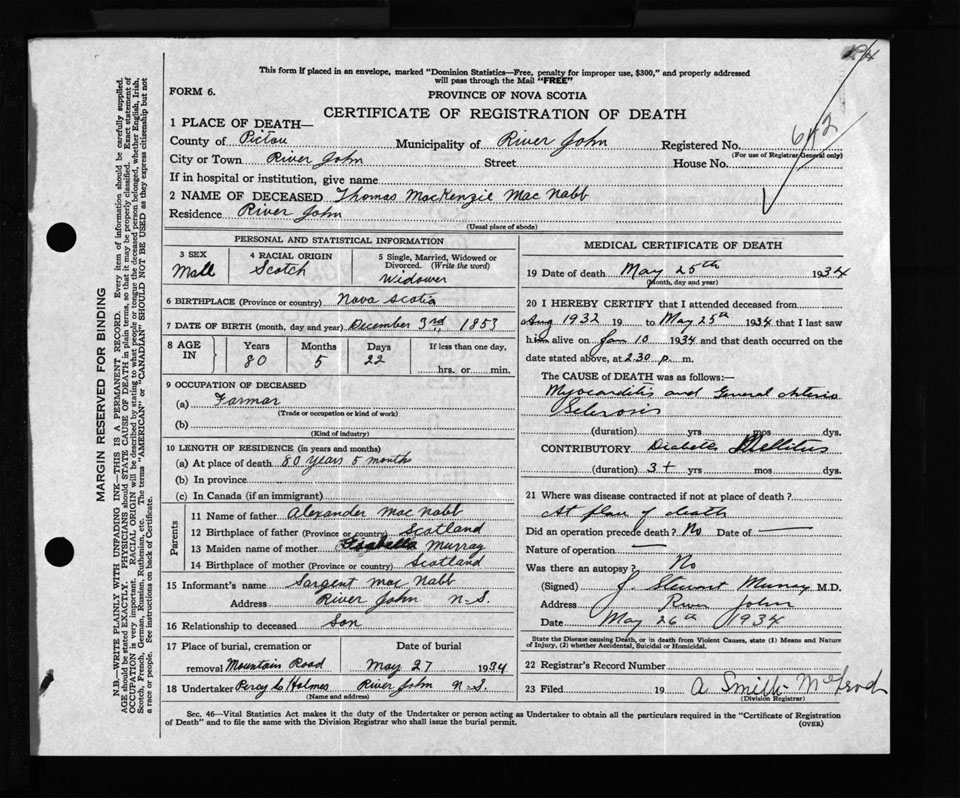 This form if placed in an envelope, marked "Dominion Statistics—Free, penalty for improper use, $300," and properly addressed
will pass through the Mail "FREE"
FORM 6.
PROVINCE OF NOVA SCOTIA
CERTIFICATE OF REGISTRATION OF DEATH
1 PLACE OF DEATH—
County of Pictou Municipality of River John Registered No. 642
(For use of Registrar General only)
City or Town River John Street House No.
If in hospital or institution, give name
2 NAME OF DECEASED Thomas MacKenzie Mac Nabb
Residence River John
(Usual place of abode)
PERSONAL AND STATISTICAL INFORMATION
3 SEX 4 RACIAL ORIGIN 5 Single, Married, Widowed or
Divorced. (Write the word)
Mall Scotch Widower
6 BIRTHPLACE (Province or country) Nova Scotia
7 DATE OF BIRTH (month, day and year) December 3rd, 1853
8 AGE IN Years Months Days If less than one day,
80 5 22 hrs. or min.
9 OCCUPATION OF DECEASED
(a) Farmar
(Trade or occupation or kind of work)
(b)
(Kind of industry)
10 LENGTH OF RESIDENCE (in years and months)
(a) At place of death 80 years 5 months
(b) In province
(c) In Canada (if an immigrant)
Parents
11 Name of father Alexander Mac Nabb
12 Birthplace of father (Province or country) Scotland
13 Maiden name of mother Isabella Murray
14 Birthplace of mother (Province or country) Scotland
15 Informant's name Sargent Mac Nabb
Address River John N-S.
16 Relationship to deceased Son
17 Place of burial, cremation or Date of burial
removal Mountain Road May 27 1934
18 Undertaker Percy C Holmes River John N-S.
(Name and address)
MEDICAL CERTIFICATE OF DEATH
19 Date of death May 25th 1934
(Month, day and year)
20 I HEREBY CERTIFY that I attended deceased from
Aug 1932 19 to May 25th 1934 that I last saw
him alive on Jan 10 1934 and that death occurred on the
date stated above, at 2.30 p. m.
The CAUSE of DEATH was as follows:—
Myocarditis and General Arterio
Sclerosis
(duration) yrs mos dys.
CONTRIBUTORY Diabetes Mellitus
(duration) 3+ yrs mos dys.
21 Where was disease contracted if not at place of death?
At place of death
Did an operation precede death? No Date of —
Nature of operation —
Was there an autopsy? No
(Signed) J. Stewart Murray M.D.
Address River John
Date May 26th 1934
State the Disease causing Death, or in death from Violent Causes, state (1) Means and Nature
of Injury, (2) whether Accidental, Suicidal or Homicidal.
22 Registrar's Record Number
23 Filed 19 A Smith McLeod
(Division Registrar)
Sec. 46—Vital Statistics Act makes it the duty of the Undertaker or person acting as Undertaker to obtain all the particulars required in the "Certificate of Registration
of Death" and to file the same with the Division Registrar who shall issue the burial permit. (OVER)
MARGIN RESERVED FOR BINDING
N.B.—WRITE PLAINLY WITH UNFADING INK—THIS IS A PERMANENT RECORD. Every item of information should be carefully supplied.
AGE should be stated EXACTLY. PHYSICIANS should STATE CAUSE OF DEATH in plain terms, so that it may be properly classified. Exact statement of
OCCUPATION is very important. RACIAL ORIGIN will be described by stating to what people or tongue the deceased person belonged, whether English, Irish,
Scotch, French, German, Russian, Ruthenian, etc. The terms "AMERICAN" or "CANADIAN" SHOULD NOT BE USED as they express citizenship but not
a race or people. See instructions on back of Certificate.